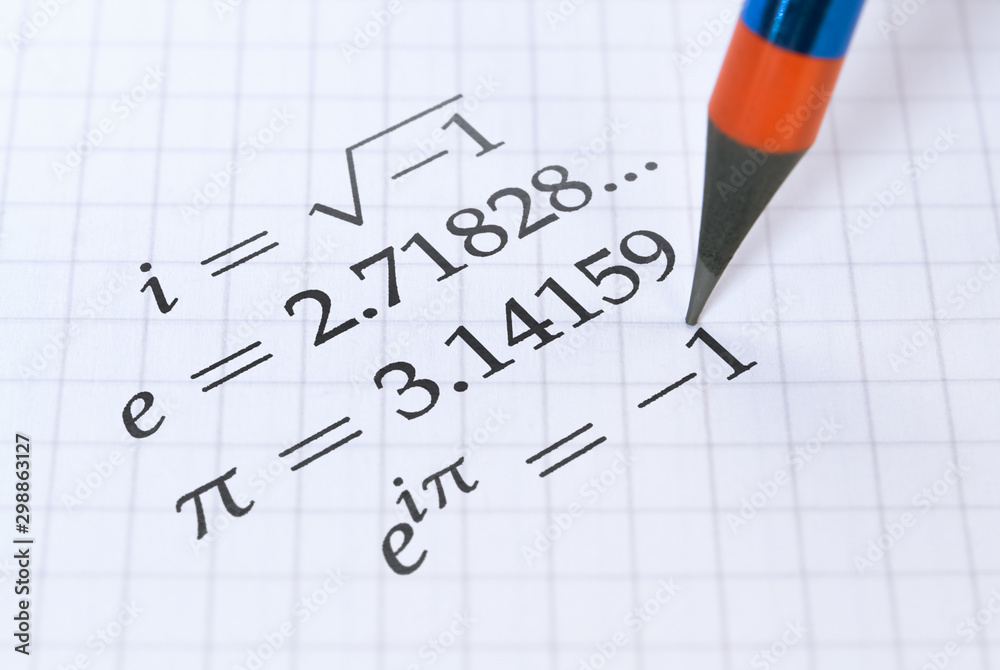 i = √−1
e = 2.71828...
π = 3.14159
e^{iπ} = −1
Adobe Stock | #298863127